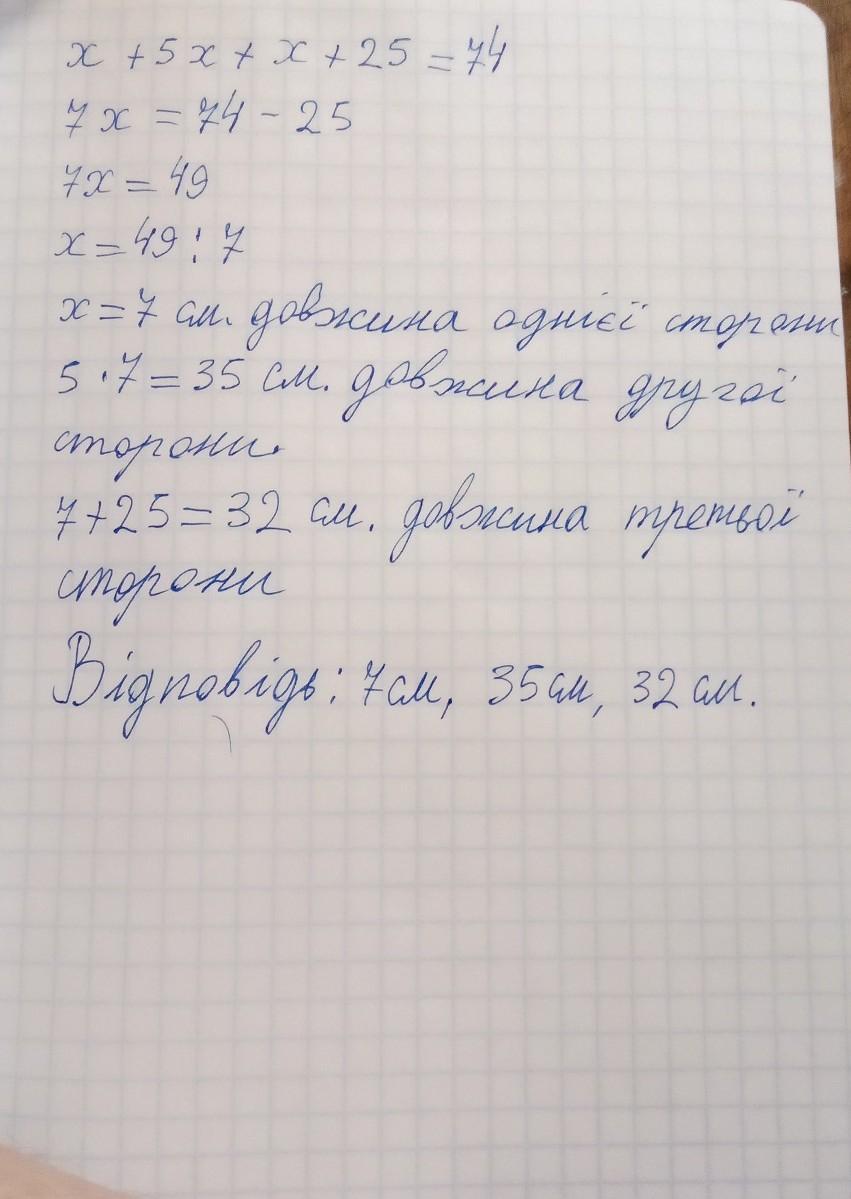 x + 5x + x + 25 = 74
7x = 74 - 25
7x = 49
x = 49 : 7
x = 7 см. довжина однієї сторони
5 · 7 = 35 см. довжина другої
сторони.
7 + 25 = 32 см. довжина третьої
сторони
Відповідь: 7 см, 35 см, 32 см.